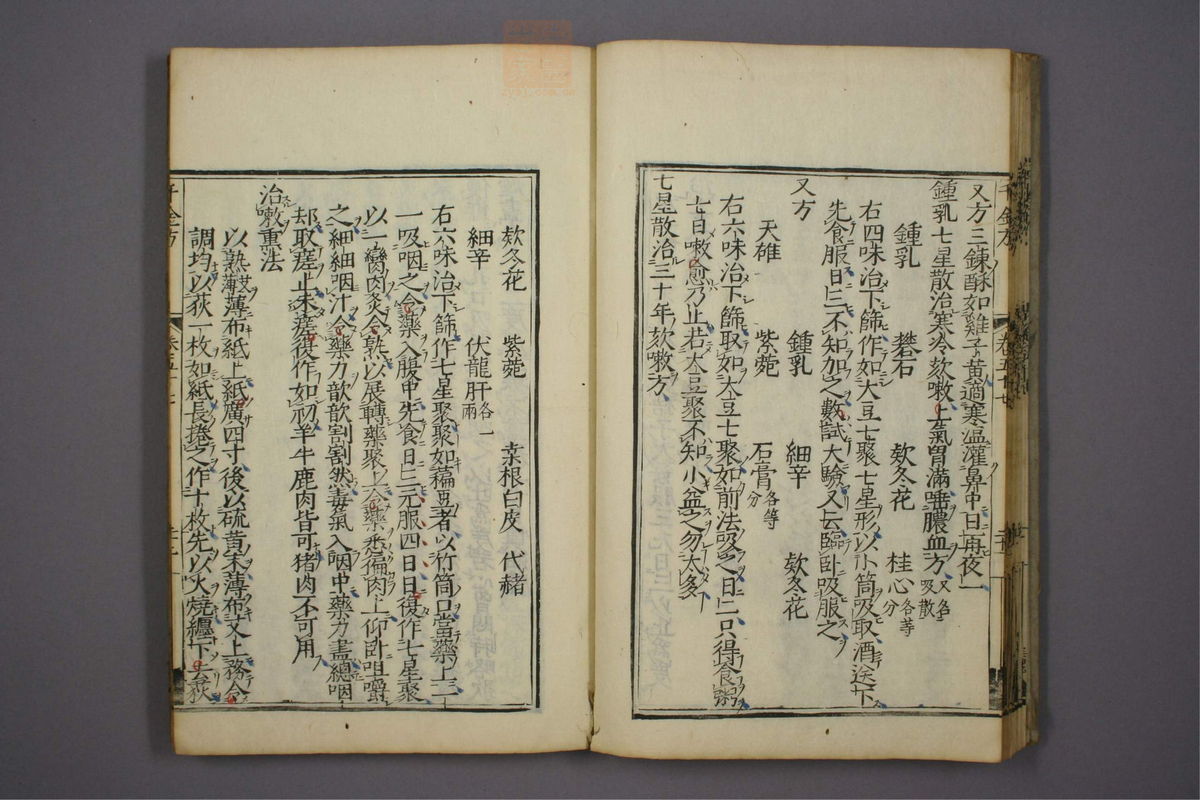 又方三錬酥如雞子黃適寒溫灌鼻中日再夜一
鍾乳七星散治寒冷欬嗽上氣胷滿唾膿血方又名吸散
鍾乳 礬石 欬冬花 桂心各等分
右四味治下篩作如大豆七聚七星形以小筒吸取酒送下
先食服日三不知加之數試大驗又云臨卧吸服之
又方
天雄 紫菀 石膏各等分
鍾乳 細辛 欬冬花
右六味治下篩取如大豆七聚如前法吸之日二只得食粥
七日嗽愈乃止若大豆聚不知小益之勿太多
七星散治三十年欬嗽方
欬冬花 紫菀 桒根白皮 代赭
細辛 伏龍肝各一兩
右六味治下篩作七星聚聚如藊豆者以竹筒口當藥上一
一吸咽之令藥入腹中先食日三丸服四日日復作七星聚
以一臠肉炙令熟以展轉藥聚上令藥悉遍肉上仰卧咀嚼
之細細咽汁令藥力歆歆割割然毒氣入咽中藥力盡總咽
却取瘥止未瘥復作如初羊牛鹿肉皆可猪肉不可用
治嗽熏法
以熟艾薄薄布紙上紙廣四寸後以硫黃末薄布艾上務令
調均以荻一枚如紙長捲之作十枚先以火燒纏下去荻
千金方